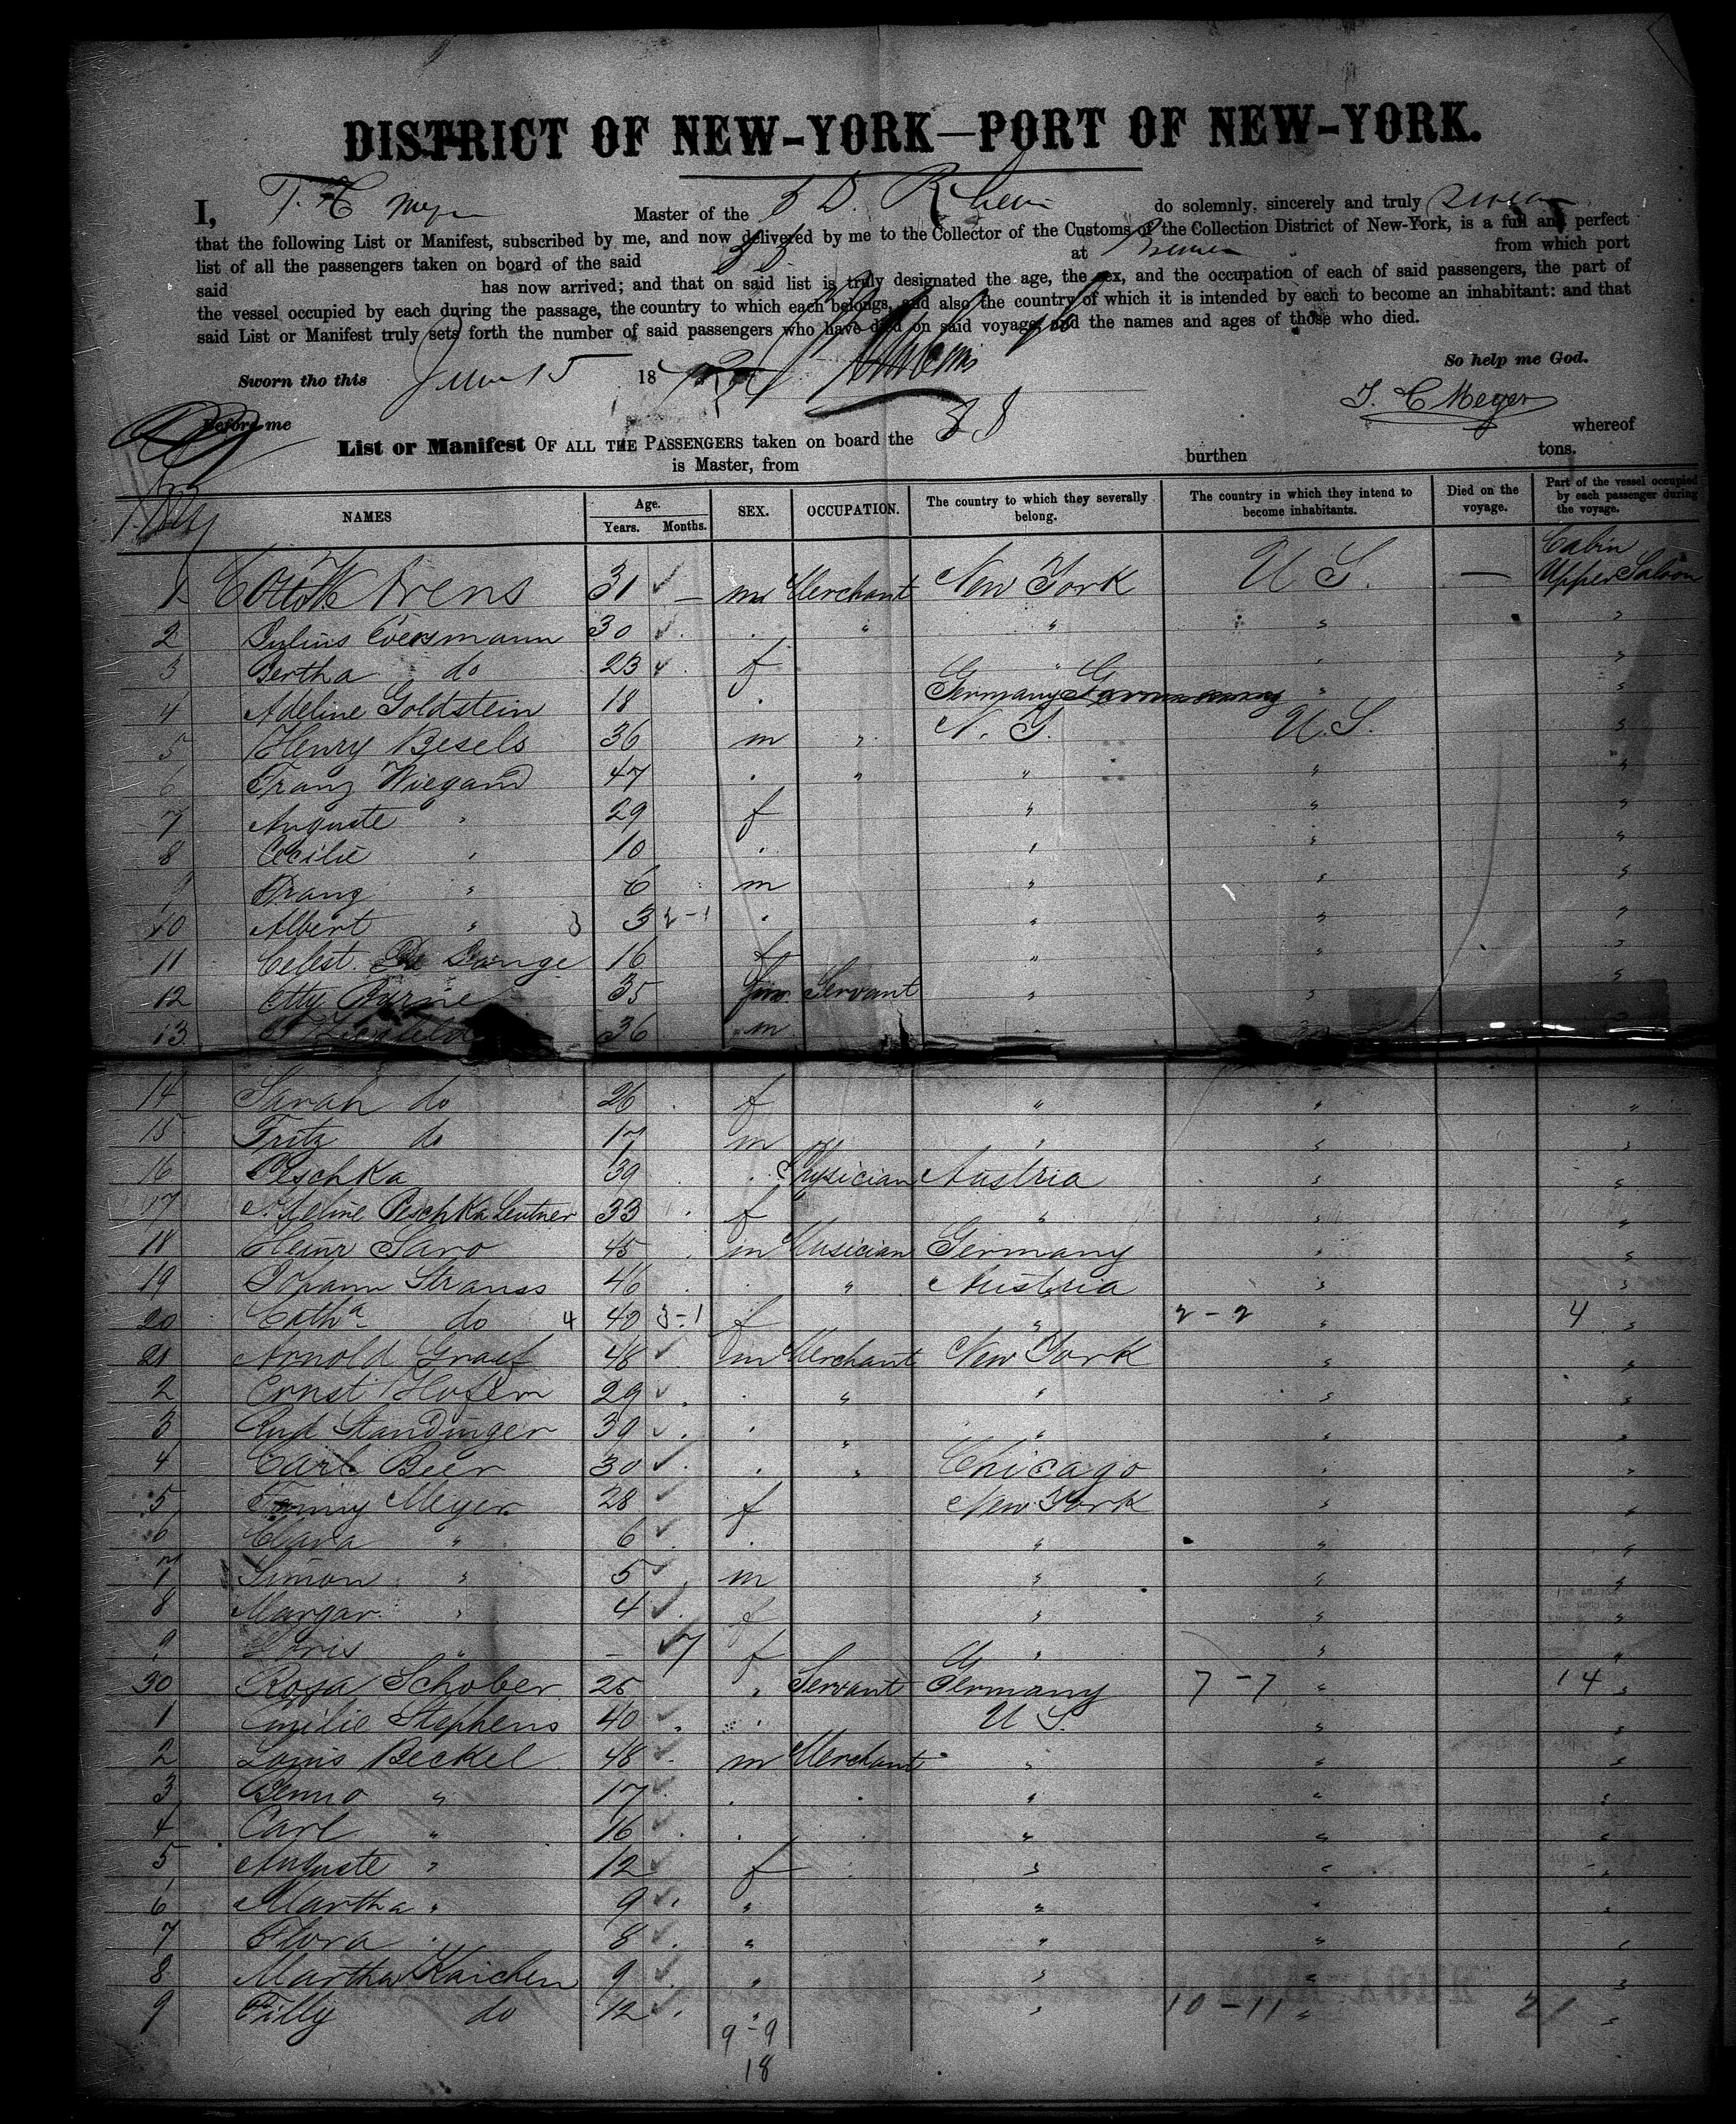 DISTRICT OF NEW-YORK—PORT OF NEW-YORK.
I, T. C Meyer Master of the S D. Rhein do solemnly, sincerely and truly swear
that the following List or Manifest, subscribed by me, and now delivered by me to the Collector of the Customs of the Collection District of New-York, is a full and perfect
list of all the passengers taken on board of the said SS at Bremen from which port
said has now arrived; and that on said list is truly designated the age, the sex, and the occupation of each of said passengers, the part of
the vessel occupied by each during the passage, the country to which each belongs, and also the country of which it is intended by each to become an inhabitant: and that
said List or Manifest truly sets forth the number of said passengers who have died on said voyage, and the names and ages of those who died.
So help me God.
Sworn tho this June 15 1872
T. C Meyer
Before me
List or Manifest OF ALL THE PASSENGERS taken on board the SS whereof
is Master, from burthen tons.
NAMES Age. Years. Months. SEX. OCCUPATION. The country to which they severally belong. The country in which they intend to become inhabitants. Died on the voyage. Part of the vessel occupied by each passenger during the voyage.
1 Arens 31 ✓ — m Merchant New York U S. — Cabin Upper Saloon
2 Julius Coersmann 30 ✓ . " " " "
3 Bertha do 23 ✓ f " " "
4 Adeline Goldstein 18 . Germany " "
5 Henry Besels 36 m " N. Y. U.S. "
6 Franz Wiegand 47 . " " " "
7 Auguste " 29 f " " "
8 Cecilie " 10 . " " "
9 Franz " 6 m " " "
10 Albert " 3 3 2-1 . " " "
11 Celest. De Lange 16 f " " "
12 Etty Byrne 35 Servant " " "
13 36 m " " "
14 Sarah do 26 f " " "
15 Fritz do 17 m " " "
16 Peschka 39 . Physician Austria " "
17 Adeline Peschka Leutner 33 f " " "
18 Heinr Saro 45 m Musician Germany " "
19 Johann Strauss 46 . " Austria " "
20 Catha do 4 40 3-1 f " 2-2 " 4 "
21 Arnold Graef 48 ✓ m Merchant New York " "
2 Ernst Hofem 29 ✓ . " " " "
3 Rud Standinger 39 ✓ . " " " "
4 Carl Beer 30 ✓ . " Chicago " "
5 Fanny Meyer 28 ✓ f New York " "
6 Clara " 6 ✓ . " " "
7 Simon " 5 ✓ m " " "
8 Margar. " 4 ✓ f " " "
9 " – ✓ 7 f " " "
30 Rosa Schober 25 " Servant Germany 7-7 " 14 "
1 Emilie Stephens 40 ✓ . U S. " "
2 Louis Beckel 48 ✓ m Merchant " " "
3 Benno " 17 ✓ . . " " "
4 Carl " 16 . . " " "
5 Auguste " 12 ✓ f " " "
6 Martha " 9 ✓ " " " "
7 Flora " 8 ✓ " " " "
8 Martha Kaichen 9 ✓ " " " "
9 Tilly do 12 ✓ " " 10-11 " 21 "
9-9
18